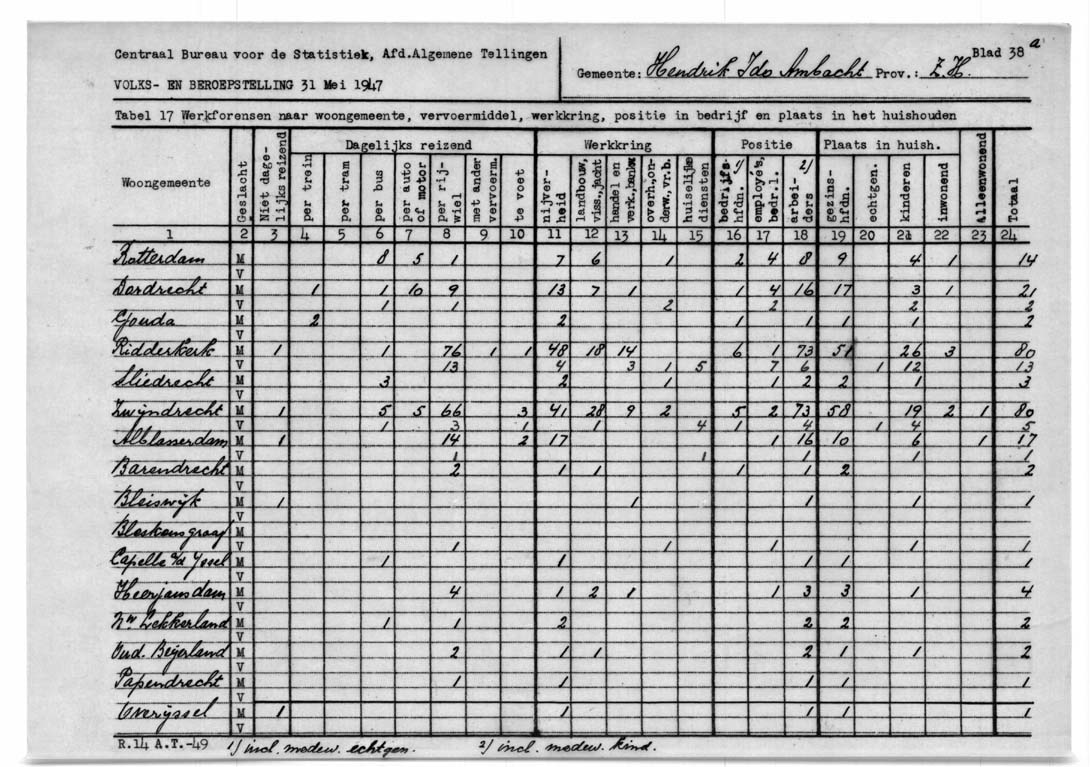 Centraal Bureau voor de Statistiek, Afd.Algemene Tellingen
VOLKS- EN BEROEPSTELLING 31 Mei 1947
Gemeente: Hendrik Ido Ambacht Prov.: Z.H.
Blad 38 a
Tabel 17 Werkforensen naar woongemeente, vervoermiddel, werkkring, positie in bedrijf en plaats in het huishouden
Woongemeente Geslacht Niet dage-lijks reizend Dagelijks reizend Werkkring Positie Plaats in huish. Alleenwonend Totaal
per trein per tram per bus per auto of motor per rij-wiel met ander vervoerm. te voet nijver-heid landbouw, viss.,jacht handel en verk.,bankw overh.,on-derw.,vr.b. huiselijke diensten bedrijfs-hfdn. 1/ employé's, bedr.l. arbei-ders 2/ gezins-hfdn. echtgen. kinderen inwonend
1 2 3 4 5 6 7 8 9 10 11 12 13 14 15 16 17 18 19 20 21 22 23 24
Rotterdam M 8 5 1 7 6 1 2 4 8 9 4 1 14
V
Dordrecht M 1 1 10 9 13 7 1 1 4 16 17 3 1 21
V 1 1 2 2 2 2
Gouda M 2 2 1 1 1 1 2
V
Ridderkerk M 1 1 76 1 1 48 18 14 6 1 73 51 26 3 80
V 13 4 3 1 5 7 6 1 12 13
Sliedrecht M 3 2 1 1 2 2 1 3
V
Zwijndrecht M 1 5 5 66 3 41 28 9 2 5 2 73 58 19 2 1 80
V 1 3 1 1 4 1 4 1 4 5
Alblasserdam M 1 14 2 17 1 16 10 6 1 17
V 1 1 1 1 1
Barendrecht M 2 1 1 1 1 2 2
V
Bleiswijk M 1 1 1 1 1
V
Bleskensgraaf M
V 1 1 1 1 1
Capelle a/d Yssel M 1 1 1 1 1
V
Heerjansdam M 4 1 2 1 1 3 3 1 4
V
Nw Lekkerland M 1 1 2 2 2 2
V
Oud. Beijerland M 2 1 1 2 1 1 2
V
Papendrecht M 1 1 1 1 1
V
Overijssel M 1 1 1 1 1
V
R.14 A.T.-49 1/ incl. medew. echtgen. 2/ incl. medew. kind.